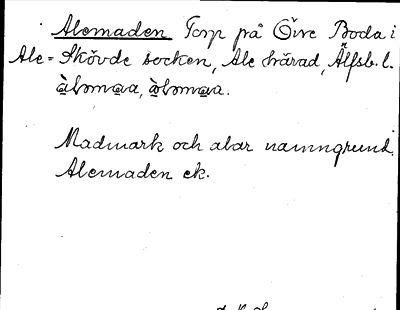 Alemaden Torp på Övre Boda i
Ale-Skövde socken, Ale härad, Älfsb. l.
Madmark och alar namngrund.
Alemaden ek.